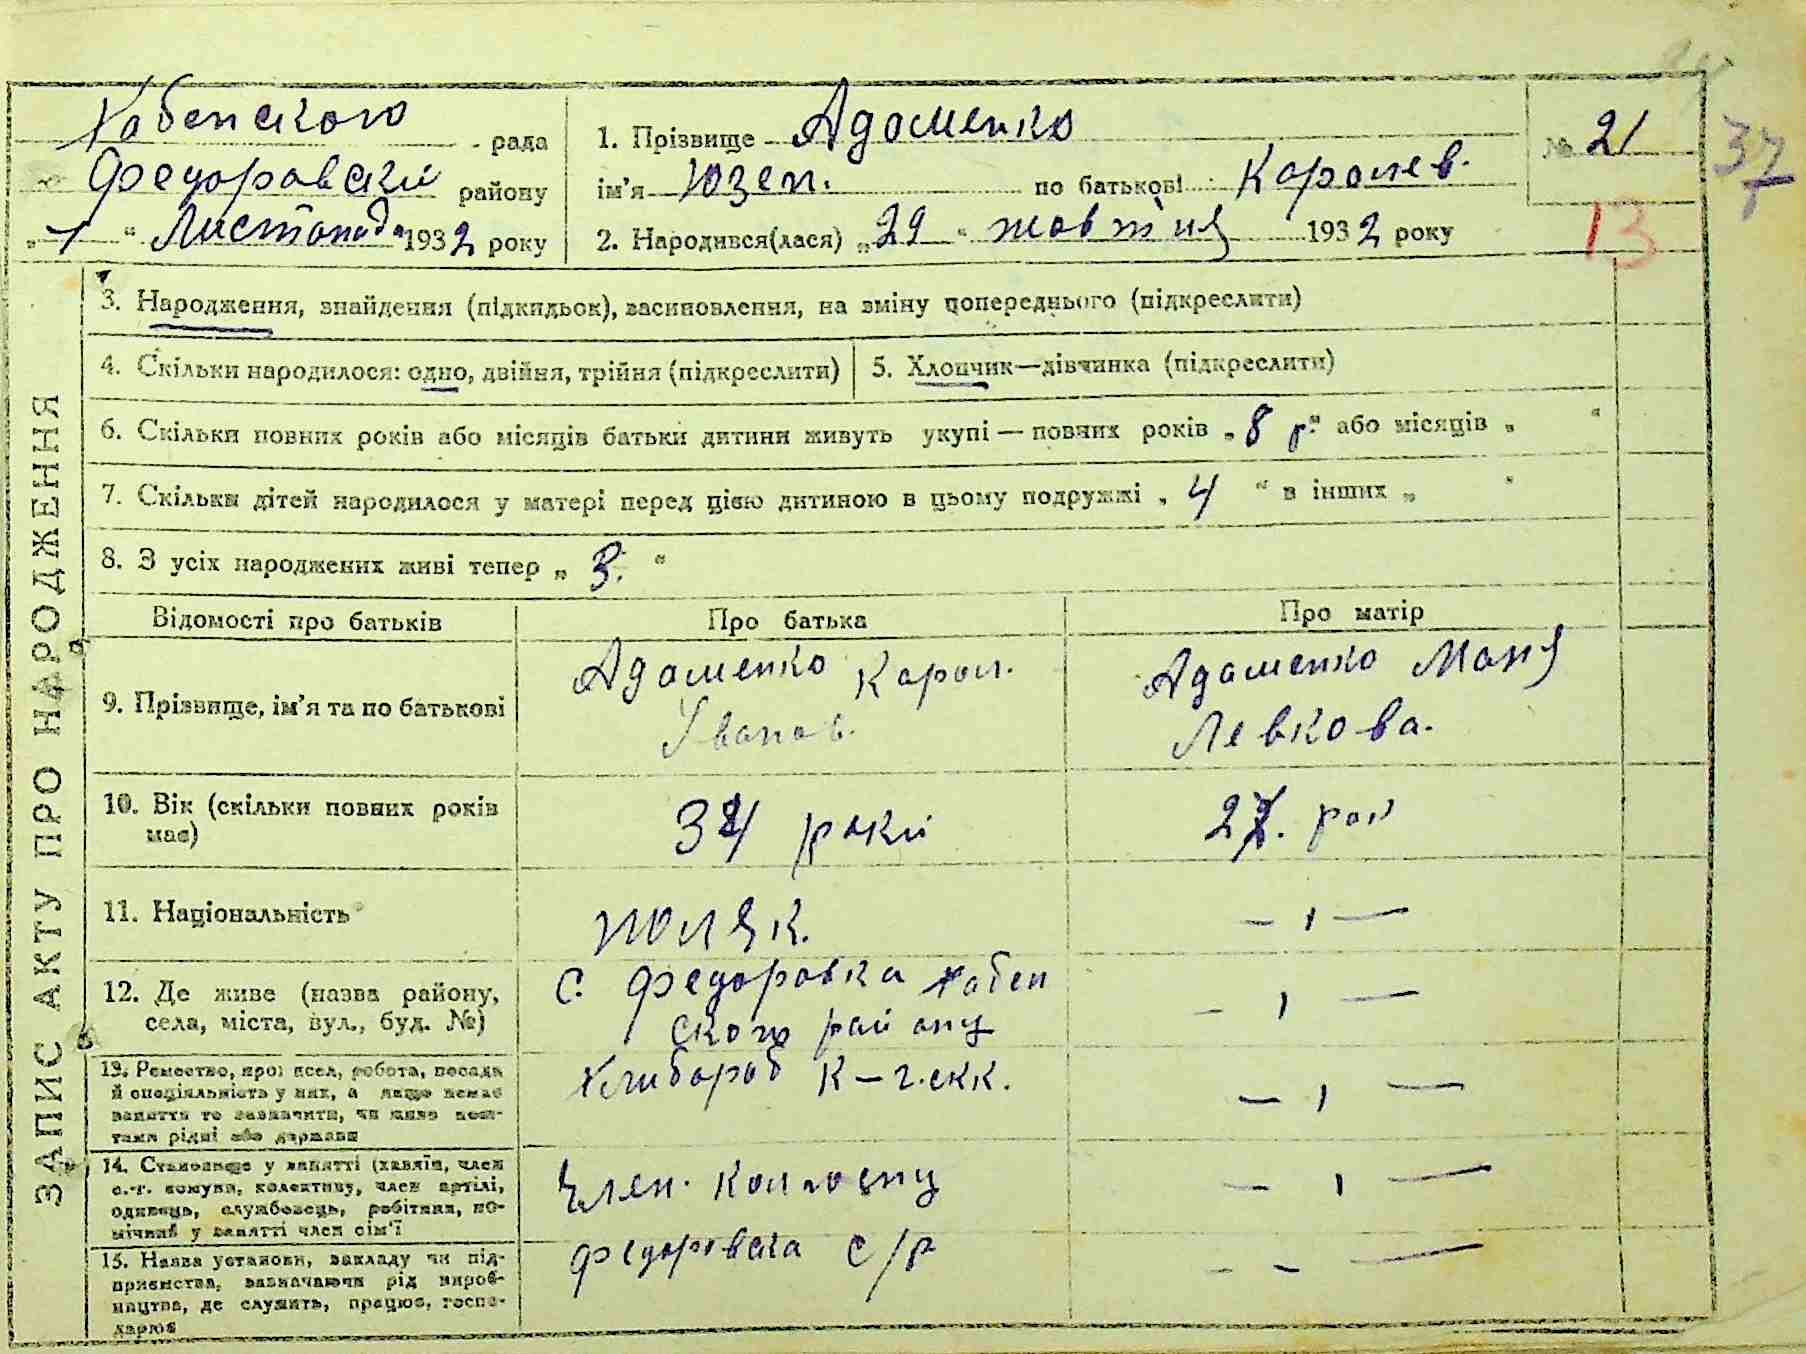 Хабенского рада
Федоровски району
„ 1 “ Листопада 1932 року
1. Прізвище Адаменко
ім'я Юзеп. по батькові Каролев.
2. Народився(лася) „29“ жовтня 1932 року
№ 21
37
13
3. Народження, знайдення (підкидьок), засиновлення, на зміну попереднього (підкреслити)
4. Скільки народилося: одно, двійня, трійня (підкреслити)
5. Хлопчик—дівчинка (підкреслити)
6. Скільки повних років або місяців батьки дитини живуть укупі — повних років „ 8 р.“ або місяців „ “
7. Скільки дітей народилося у матері перед цією дитиною в цьому подружжі „ 4 “ в інших „ “
8. З усіх народжених живі тепер „ 3. “
ЗАПИС АКТУ ПРО НАРОДЖЕННЯ
Відомості про батьків
Про батька
Про матір
9. Прізвище, ім'я та по батькові
Адаменко Карол.
Іванов.
Адаменко Маня
Левкова.
10. Вік (скільки повних років
має)
34 роки
27. рок
11. Національність
поляк.
— ı —
12. Де живе (назва району,
села, міста, вул., буд. №)
с. Федоровка Хабен
ского району
— ı —
13. Ремество, професія, робота, посада
й спеціяльність у них, а якщо немає
заняття то зазначити, чи живе кош-
тами рідні або держави
Хлибороб к-г.скк.
— ı —
14. Становище у занятті (хазяїн, член
с.-г. комуни, колективу, член артілі,
одинець, службовець, робітник, по-
мічний у занятті член сім'ї
Член. колгоспу
— ı —
15. Назва установи, закладу чи під-
приємства, зазначаючи рід вироб-
ництва, де служить, працює, госпо-
дарює
Федоровска с/р
— — —